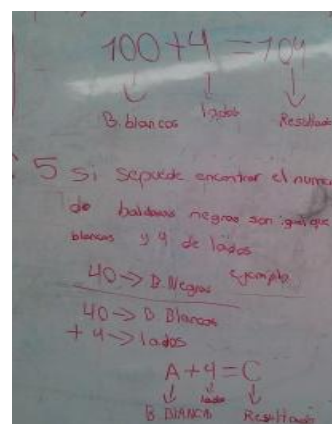 100+4 = 104
B. blancos lados Resultado
5 Si sepuede encontrar el numer
de baldosas negras son igual que
blancas y 4 de lados
40 → B. Negras Ejemplo
40 → B Blancas
+ 4 → lados
A + 4 = C
lados
B BLANCA Resultado